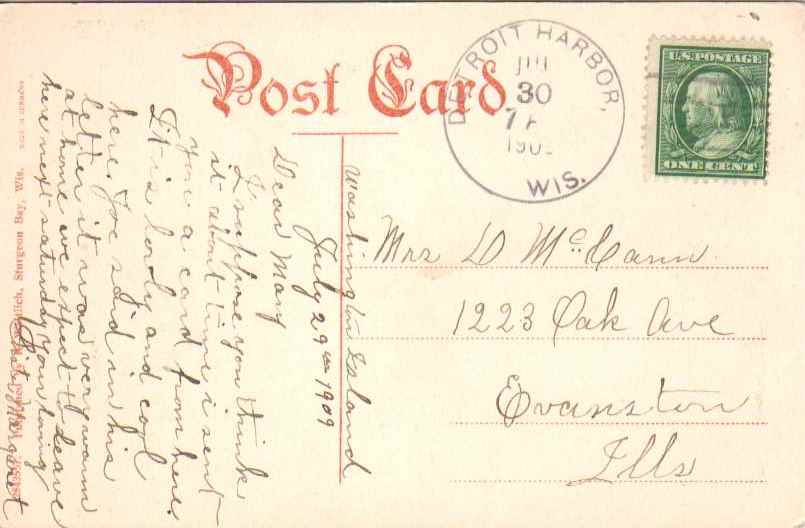 Post Card
DETROIT HARBOR,
JUL
30
7
190
WIS.
U.S. POSTAGE
ONE CENT
Mrs D McCann
1223 Oak Ave
Evanston
Ills
Washington Island
July 29th 1909
Dear Mary
I suppose you think
it about time i sent
you a card from here.
It is lovly and cool
here. Joe said in his
letter it was very warm
at home we expect to leave
here next saturday your loving
Sister Margaret
Sturgeon Bay, Wis.